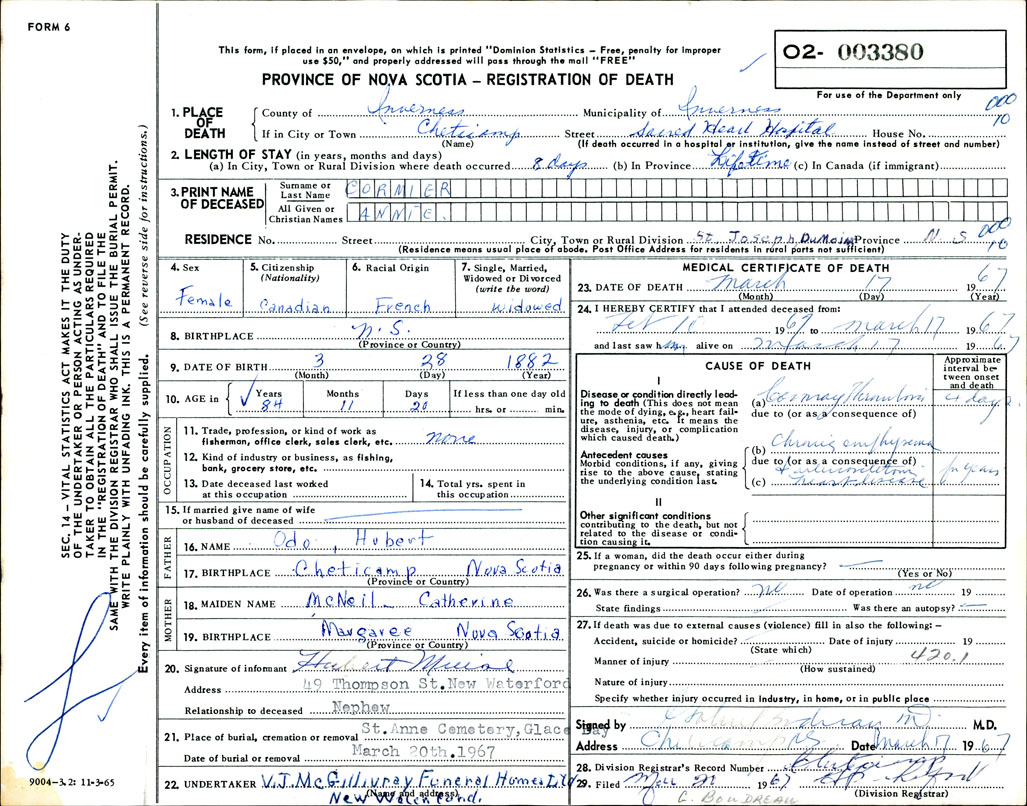 FORM 6
This form, if placed in an envelope, on which is printed "Dominion Statistics – Free, penalty for improper
use $50," and properly addressed will pass through the mail "FREE"
PROVINCE OF NOVA SCOTIA – REGISTRATION OF DEATH
O2- 003380
For use of the Department only
SEC. 14 – VITAL STATISTICS ACT MAKES IT THE DUTY
OF THE UNDERTAKER OR PERSON ACTING AS UNDER-
TAKER TO OBTAIN ALL THE PARTICULARS REQUIRED
IN THE "REGISTRATION OF DEATH" AND TO FILE THE
SAME WITH THE DIVISION REGISTRAR WHO SHALL ISSUE THE BURIAL PERMIT.
WRITE PLAINLY WITH UNFADING INK. THIS IS A PERMANENT RECORD.
Every item of information should be carefully supplied. (See reverse side for instructions.)
1. PLACE OF DEATH
County of Inverness Municipality of Inverness 000
10
If in City or Town Cheticamp Street Sacred Heart Hospital House No.
(Name) (If death occurred in a hospital or institution, give the name instead of street and number)
2. LENGTH OF STAY (in years, months and days)
(a) In City, Town or Rural Division where death occurred 8 days (b) In Province Lifetime (c) in Canada (if immigrant)
3. PRINT NAME OF DECEASED
Surname or Last Name CORMIER
All Given or Christian Names ANNIE.
RESIDENCE No. Street City, Town or Rural Division St. Joseph DuMoine Province N. S. 000
10
(Residence means usual place of abode. Post Office Address for residents in rural parts not sufficient)
4. Sex
Female
5. Citizenship
(Nationality)
Canadian
6. Racial Origin
French
7. Single, Married,
Widowed or Divorced
(write the word)
Widowed
8. BIRTHPLACE N.S.
(Province or Country)
9. DATE OF BIRTH 3 28 1882
(Month) (Day) (Year)
10. AGE in Years Months Days If less than one day old
84 11 20 hrs. or min.
OCCUPATION
11. Trade, profession, or kind of work as
fisherman, office clerk, sales clerk, etc. none
12. Kind of industry or business, as fishing,
bank, grocery store, etc.
13. Date deceased last worked
at this occupation
14. Total yrs. spent in
this occupation
15. If married give name of wife
or husband of deceased
FATHER
16. NAME Odo, Hubert
17. BIRTHPLACE Cheticamp Nova Scotia
(Province or Country)
MOTHER
18. MAIDEN NAME McNeil Catherine
19. BIRTHPLACE Margaree Nova Scotia
(Province or Country)
20. Signature of informant Hubert
Address 49 Thompson St. New Waterford
Relationship to deceased Nephew
21. Place of burial, cremation or removal St. Anne Cemetery, Glace Bay
Date of burial or removal March 20th. 1967
22. UNDERTAKER V.J. McGillivray Funeral Home Ltd
(Name and address)
9004-3.2: 11-3-65
MEDICAL CERTIFICATE OF DEATH
23. DATE OF DEATH March 17 1967
(Month) (Day) (Year)
24. I HEREBY CERTIFY that I attended deceased from:
1967 to March 17 1967
and last saw h alive on March 17 1967
CAUSE OF DEATH
Approximate
interval be-
tween onset
and death
I
Disease or condition directly lead-
ing to death (This does not mean
the mode of dying, e.g., heart fail-
ure, asthenia, etc. It means the
disease, injury, or complication
which caused death.)
(a) Coronary Thrombosis 4 days
due to (or as a consequence of)
Antecedent causes
Morbid conditions, if any, giving
rise to the above cause, stating
the underlying condition last.
(b) Chronic emphysema
due to (or as a consequence of)
(c) heart disease years
II
Other significant conditions
contributing to the death, but not
related to the disease or condi-
tion causing it.
25. If a woman, did the death occur either during
pregnancy or within 90 days following pregnancy?
(Yes or No)
26. Was there a surgical operation? no Date of operation no 19
State findings Was there an autopsy?
27. If death was due to external causes (violence) fill in also the following: –
Accident, suicide or homicide? Date of injury 19
(State which)
420.1
Manner of injury
(How sustained)
Nature of injury
Specify whether injury occurred in industry, in home, or in public place
Signed by M.D.
Address Cheticamp NS Date March 17 1967
28. Division Registrar's Record Number
29. Filed 21 1967
(Division Registrar)
G. BOUDREAU